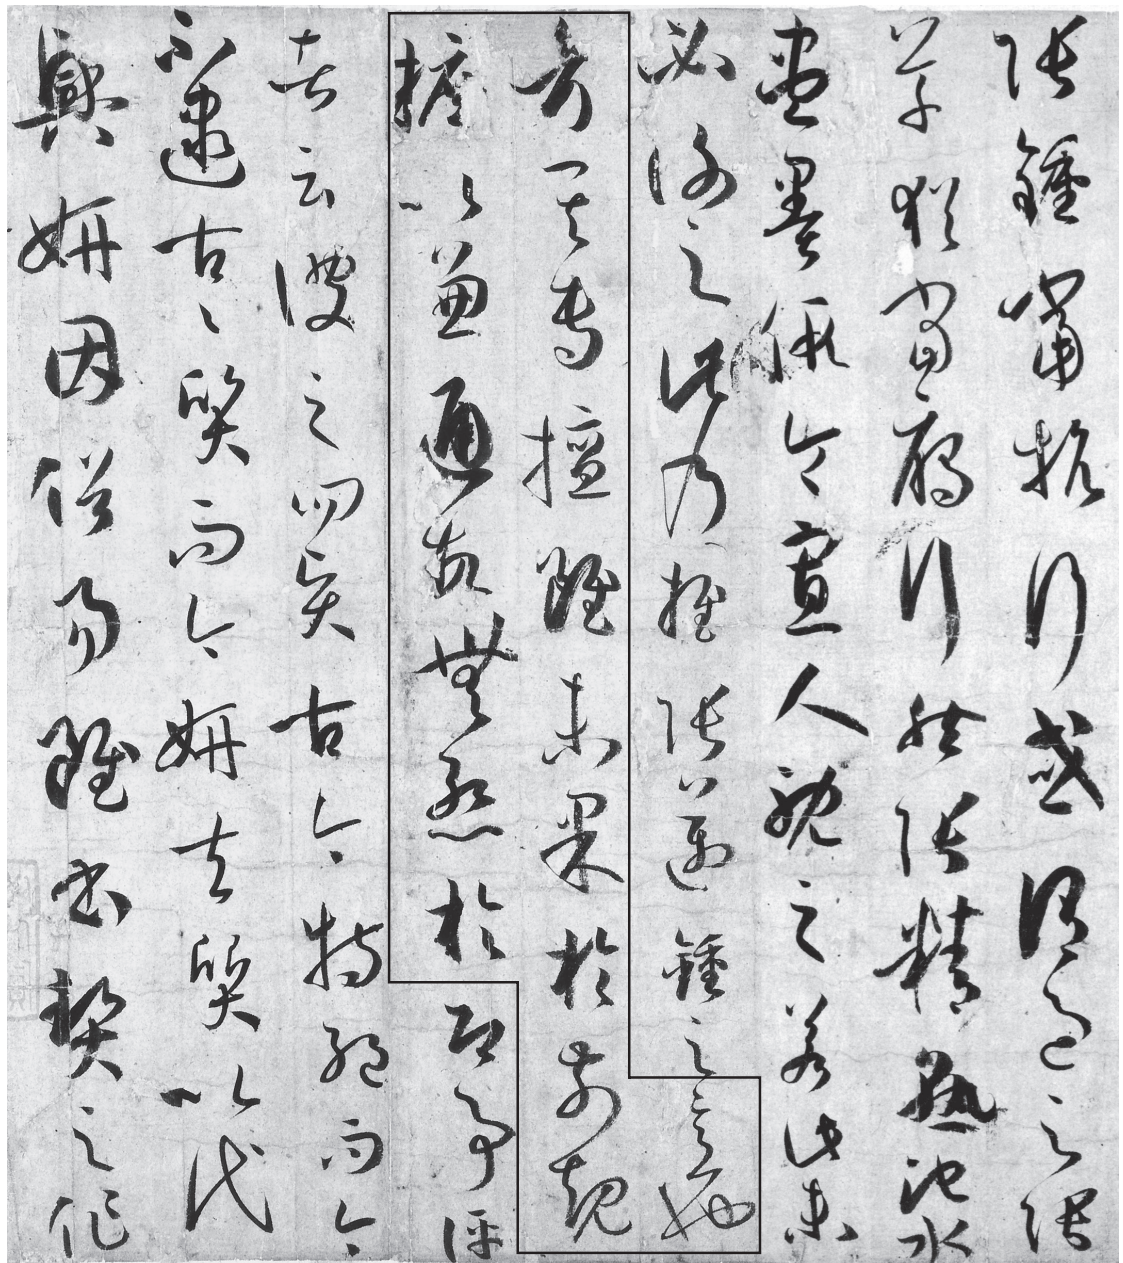 張鍾當抗行或謂過之張
草猶當雁行然張精熟池水
盡墨假令寡人耽之若此未
必謝之此乃推張邁鍾之意也
考其專擅雖未果於前規
摭以兼通故無慙於即事評
者云彼之四賢古今特絕而今
不逮古古質而今妍夫質以代
興妍因俗易雖書契之作